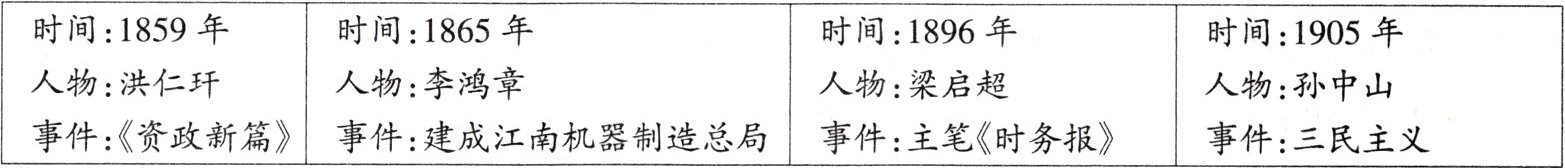 时间:1859 年
人物:洪仁玕
事件:《资政新篇》
时间:1865 年
人物:李鸿章
事件:建成江南机器制造总局
时间:1896 年
人物:梁启超
事件:主笔《时务报》
时间:1905 年
人物:孙中山
事件:三民主义